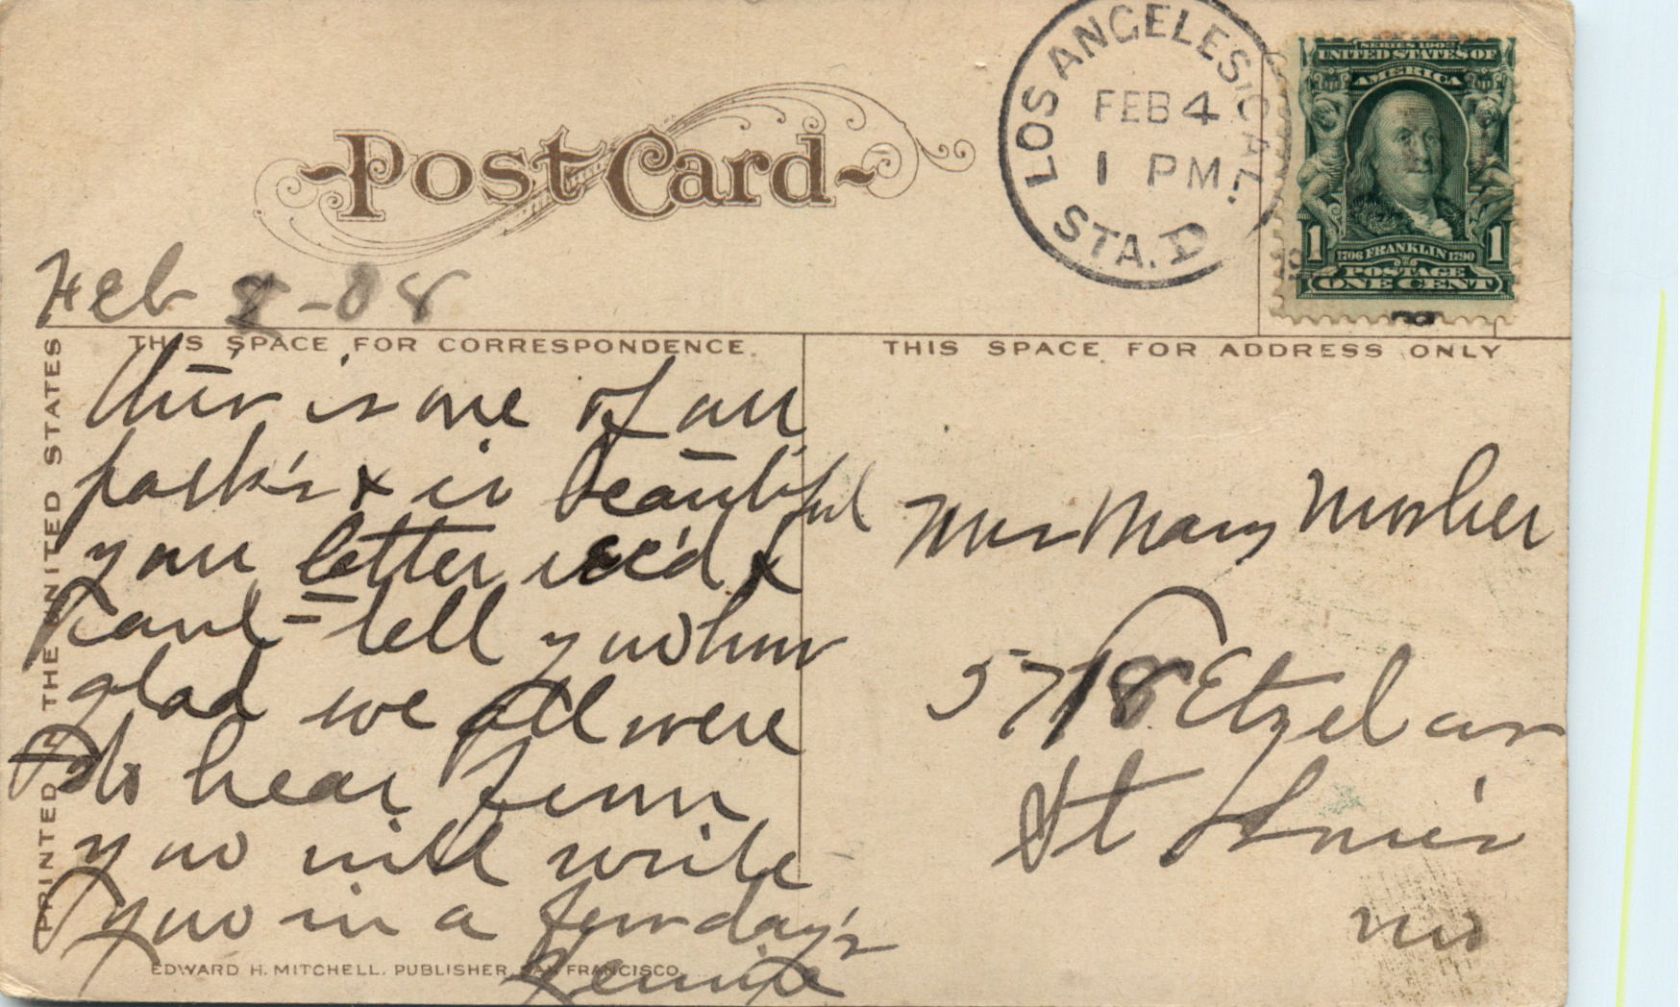 Post Card
LOS ANGELES, CAL.
FEB 4
1 PM
STA.
SERIES 1902
UNITED STATES OF
AMERICA
1 1706 FRANKLIN 1790 1
POSTAGE
ONE CENT
Feb -08
THIS SPACE FOR CORRESPONDENCE.
THIS SPACE FOR ADDRESS ONLY
PRINTED IN THE UNITED STATES
this is one of our
park's & is beautiful
your letter rec'd &
cant tell you how
glad we all were
to hear from
you will write
you in a few day's
Jennie
Mrs Mary Mosher
5718 Etzel av
St Louis
Mo
EDWARD H. MITCHELL. PUBLISHER SAN FRANCISCO